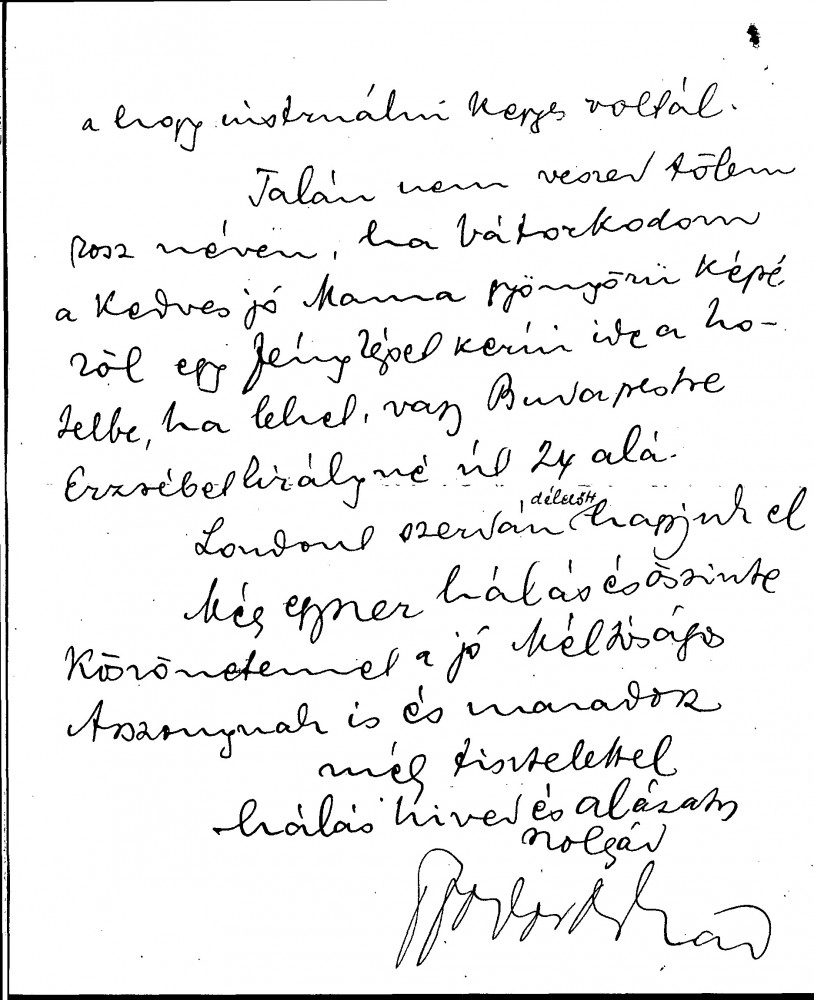 a hogy instruálni kegyes voltál.
Talán nem veszed tőlem
rosz néven, ha bátorkodom
a Kedves jó Mama gyönyörü képé
ről egy fényképet kérni ide a ho-
telbe, ha lehet, vagy Budapestre
Erzsébet királyné út 24 alá.
Londont szerdán délelőtt hagyjuk el
Még egyszer hálás és őszinte
Köszönetemet a jó Méltóságos
Asszonynak is és maradok
mély tisztelettel
hálás hived és alázatos
szolgád